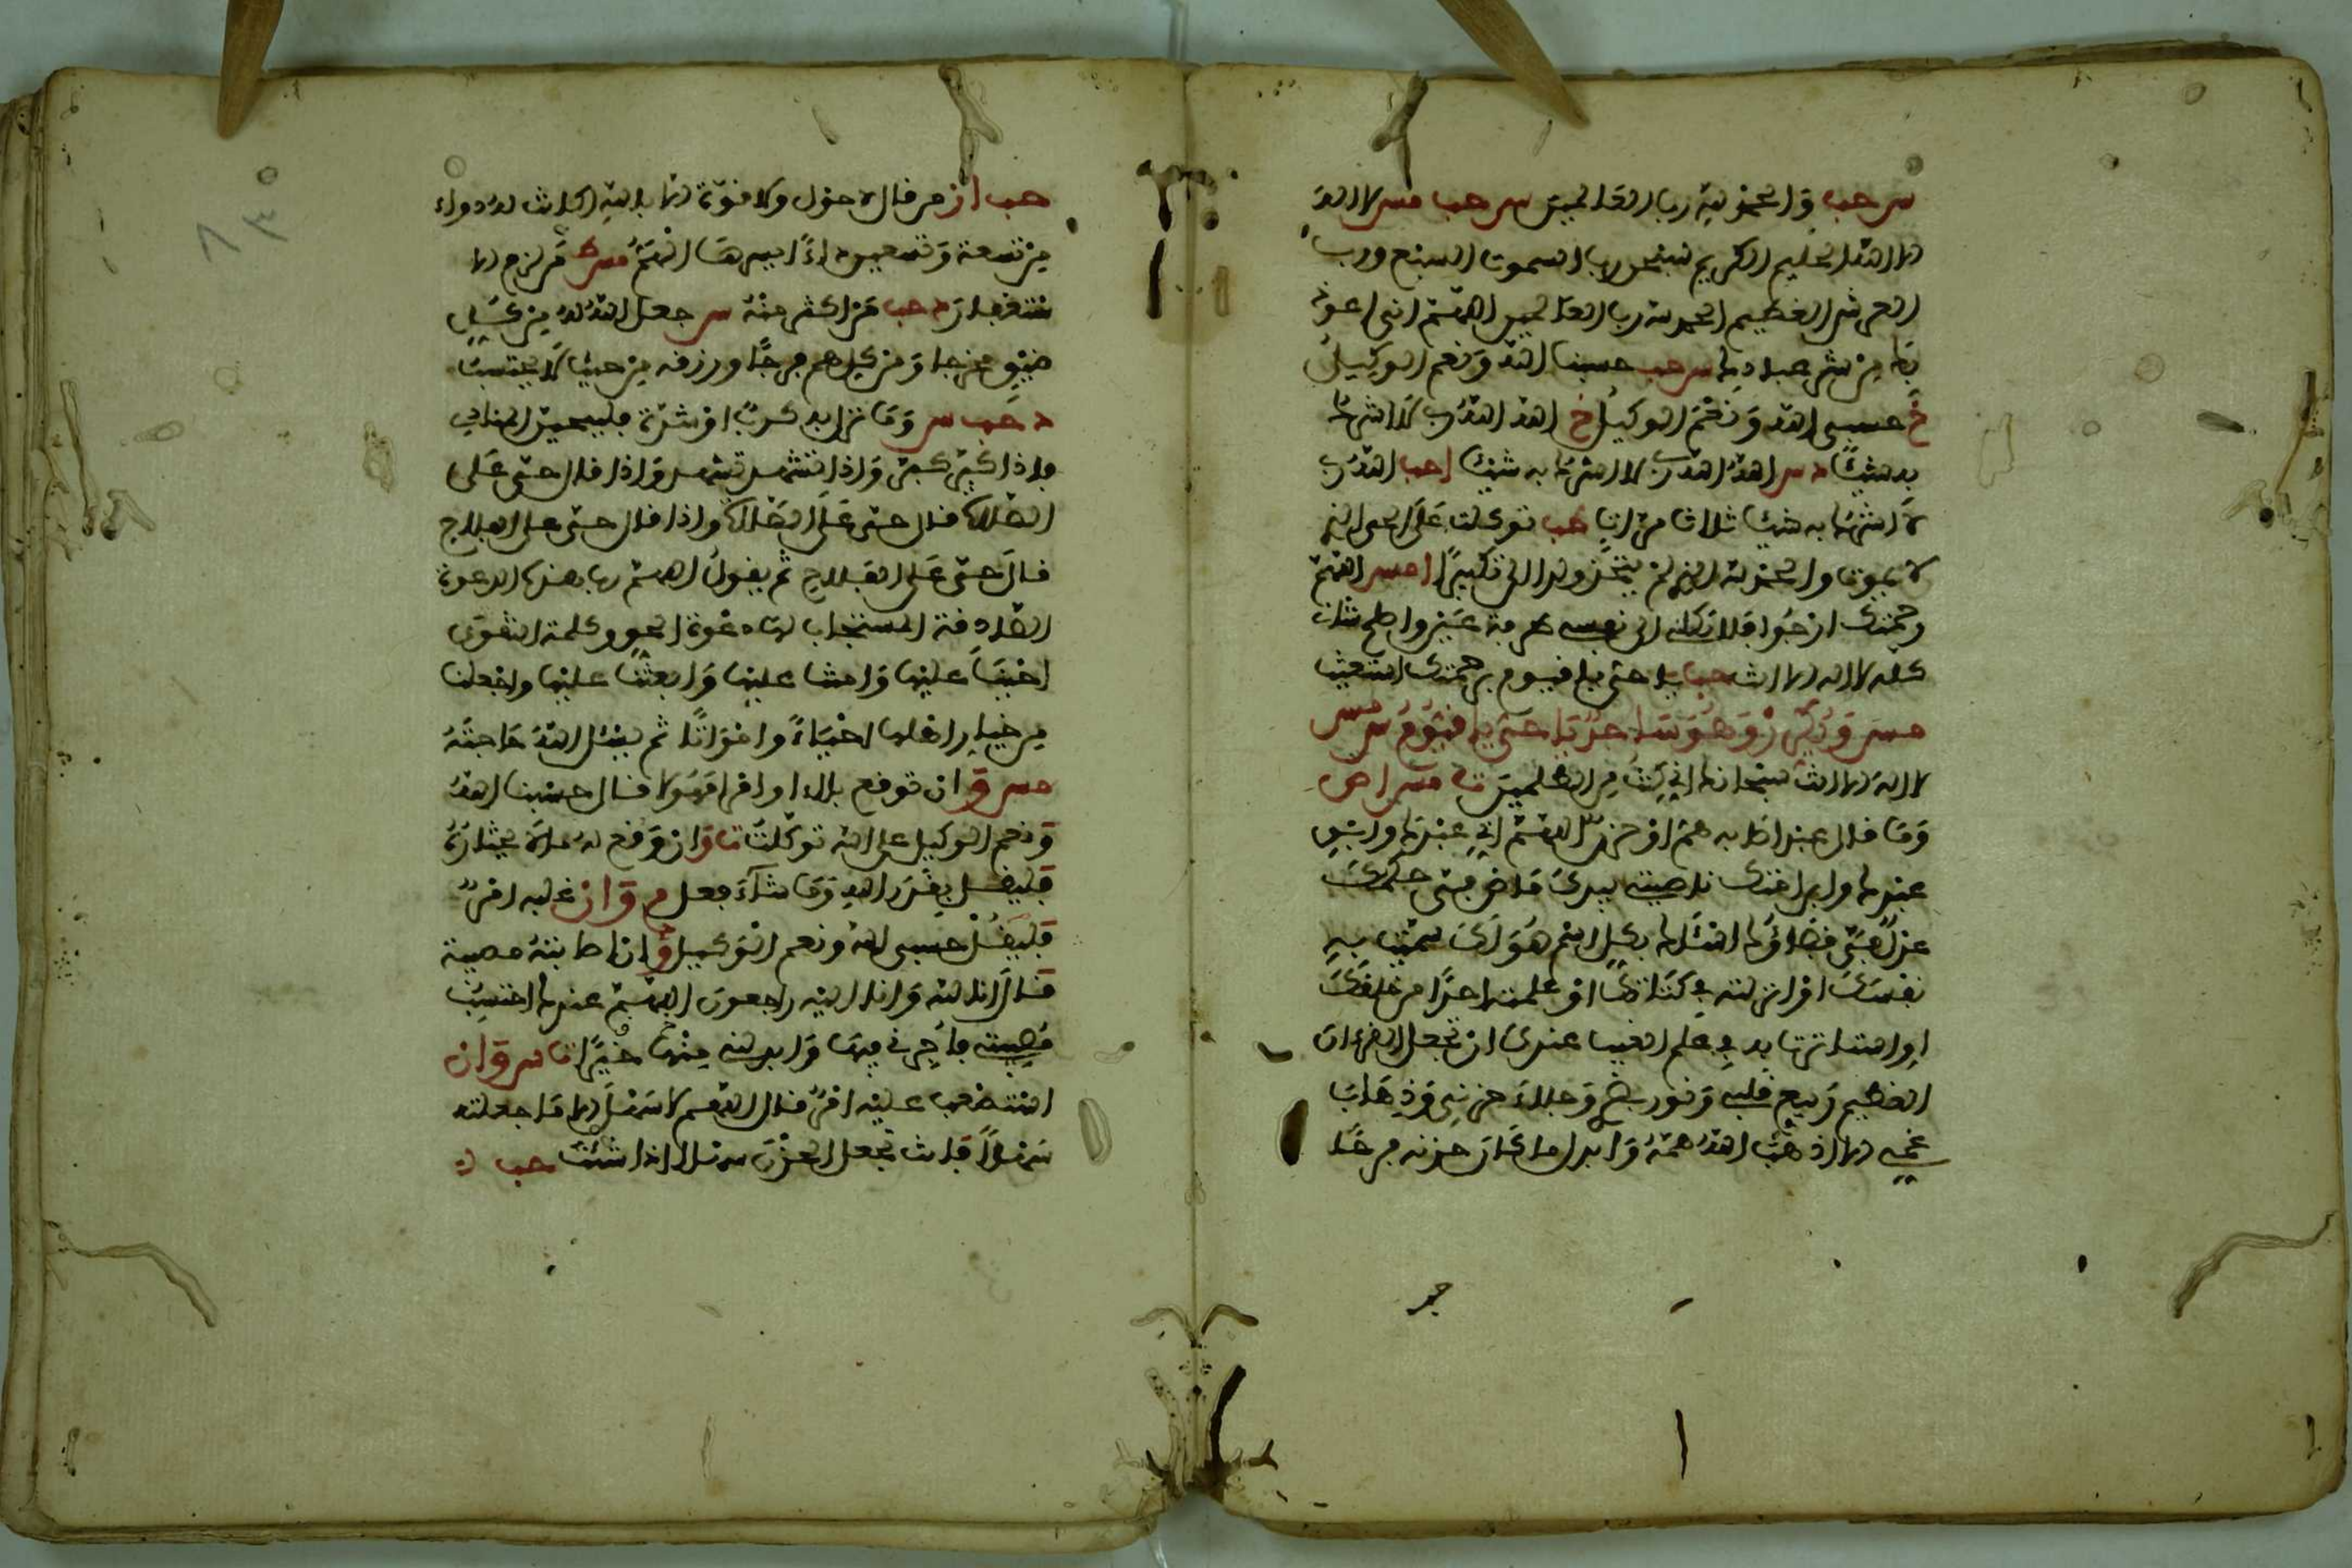 س حب وَالحمد لله رب العالمين س حب مس لا اله
الا الله الحليم الكريم سبحن رب السموت السبع ورب
العرش العظيم الحمد لله رب العالمين اللهم اني اعوذ
بك من شر عبادك س حب حسبنا الله وَنعم الوكيل
خ حسبي الله وَنعم الوكيل خ الله الله ربي لا اشرك
به شيئا د س الله الله ربي لا اشرك به شيئا احب الله ربي
لا اشرك به شيئا ثلاث مرات حب توكلت عَلَى الحي الذي
لا يموت والحمد لله الذي لم يتخذ ولدا الى تكبيرًا امس اللهم
رحمتك ارجوا فلا تكلني الى نفسي طرفة عين واصلح شاني
كله لا اله الا انت حب يا حي يا قيوم برحمتك استغيث
مس وَيكرر وَهُوَ ساجد يا حي يا قيوم س مس
لا اله الا انت سبحانك اني كنت من الظلمين ت س مس ا ص
وَمَا قال عبد اصابه هم او حزن اللهم اني عبدك وابن
عبدك وابن امتك ناصيتي بيدك مَاض في حكمك
عدل في قضاؤك اسئلك بكل اسم هُوَ لك سميت به
نفسك او انزلته في كتابك او علمته احدًا من خلقك
او استاثرت به في علم الغيب عندك ان تجعل القرءان
العظيم رَبيع قلبي وَنور بصري وَجلاء حزني وَذهاب
غمي الا اذهب الله همه وَابدله مكان حزنه فرحًا
حب
حب ا ز من قال لا حول ولا قوة الا بالله كانت له دواء
من تسعة وَتسعين داءً ايسرها الهم مس ط مَن لزم الا
ستغفار د حب مَن اكثر منه س جعل الله له من كل
ضيق مخرجا وَمن كل هم فرجًا ورزقه من حيث لا يحتسب
د حب س وَمَا نزل به كرب او شدة فليتحين المنادي
فاذا كبر كبر وَاذا تشهد تشهد وَاذا قال حي عَلَى
الصلاة قال حي عَلَى الصلاة واذا قال حي على الفلاح
قال حي عَلَى الفلاح ثم يقول اللهم رب هذه الدعوة
الصادقة المستجاب لها دعوة الحق وكلمة التقوى
احينا عليها وَامتنا عليها وَابعثنا عليها واجعلنا
من خيار اهلها احياءً وامواتًا ثم يسئل الله حَاجته
مس ق ان توقع بلاء او امرا مهولا قال حسبنا الله
وَنعم الوكيل على الله توكلت ت ق وان وَقع له مالا يختاره
فليقل بقدر الله وَمَا شآء فعل م ق وان غلبه امر
فليقل حسبي الله ونعم الوكيل ق وان اصابته مصيبة
قال انا لله وَانا اليه راجعون اللهم عندك احتسبت
مُصيبتي فاجرني فيها وَابدلني منها خيرًا ت س ق وان
استصعب عليه امر قال اللهم لا سَهل الا مَا جعلته
سَهلًا وانت تجعل الحزن سهلا اذا شئت حب